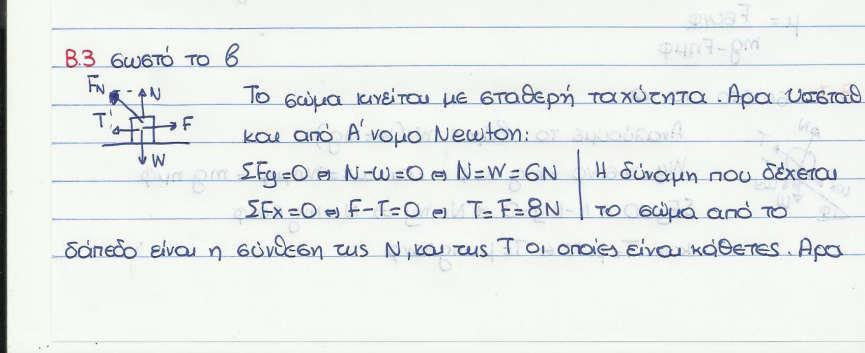 B.3 σωστό το β
Το σώμα κινείται με σταθερή ταχύτητα. Άρα υ=σταθ
και από Α' νομο Newton:
ΣFy=0 ⇔ N-W=0 ⇔ N=W=6N | Η δύναμη που δέχεται
ΣFx=0 ⇔ F-T=0 ⇔ T=F=8N | το σώμα από το
δάπεδο είναι η σύνθεση της N, και της T οι οποίες είναι κάθετες. Άρα
FN
N
T
F
W